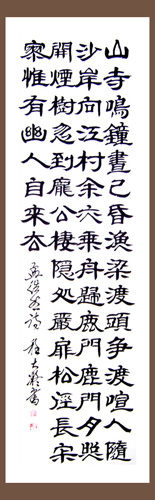 山寺鳴鐘晝已昏漁梁渡頭爭渡喧人隨
沙岸向江村余亦乘舟歸鹿門鹿門月照
開煙樹忽到龐公棲隱處嚴扉松徑長寂
寥惟有幽人自來去
孟浩然詩 大書